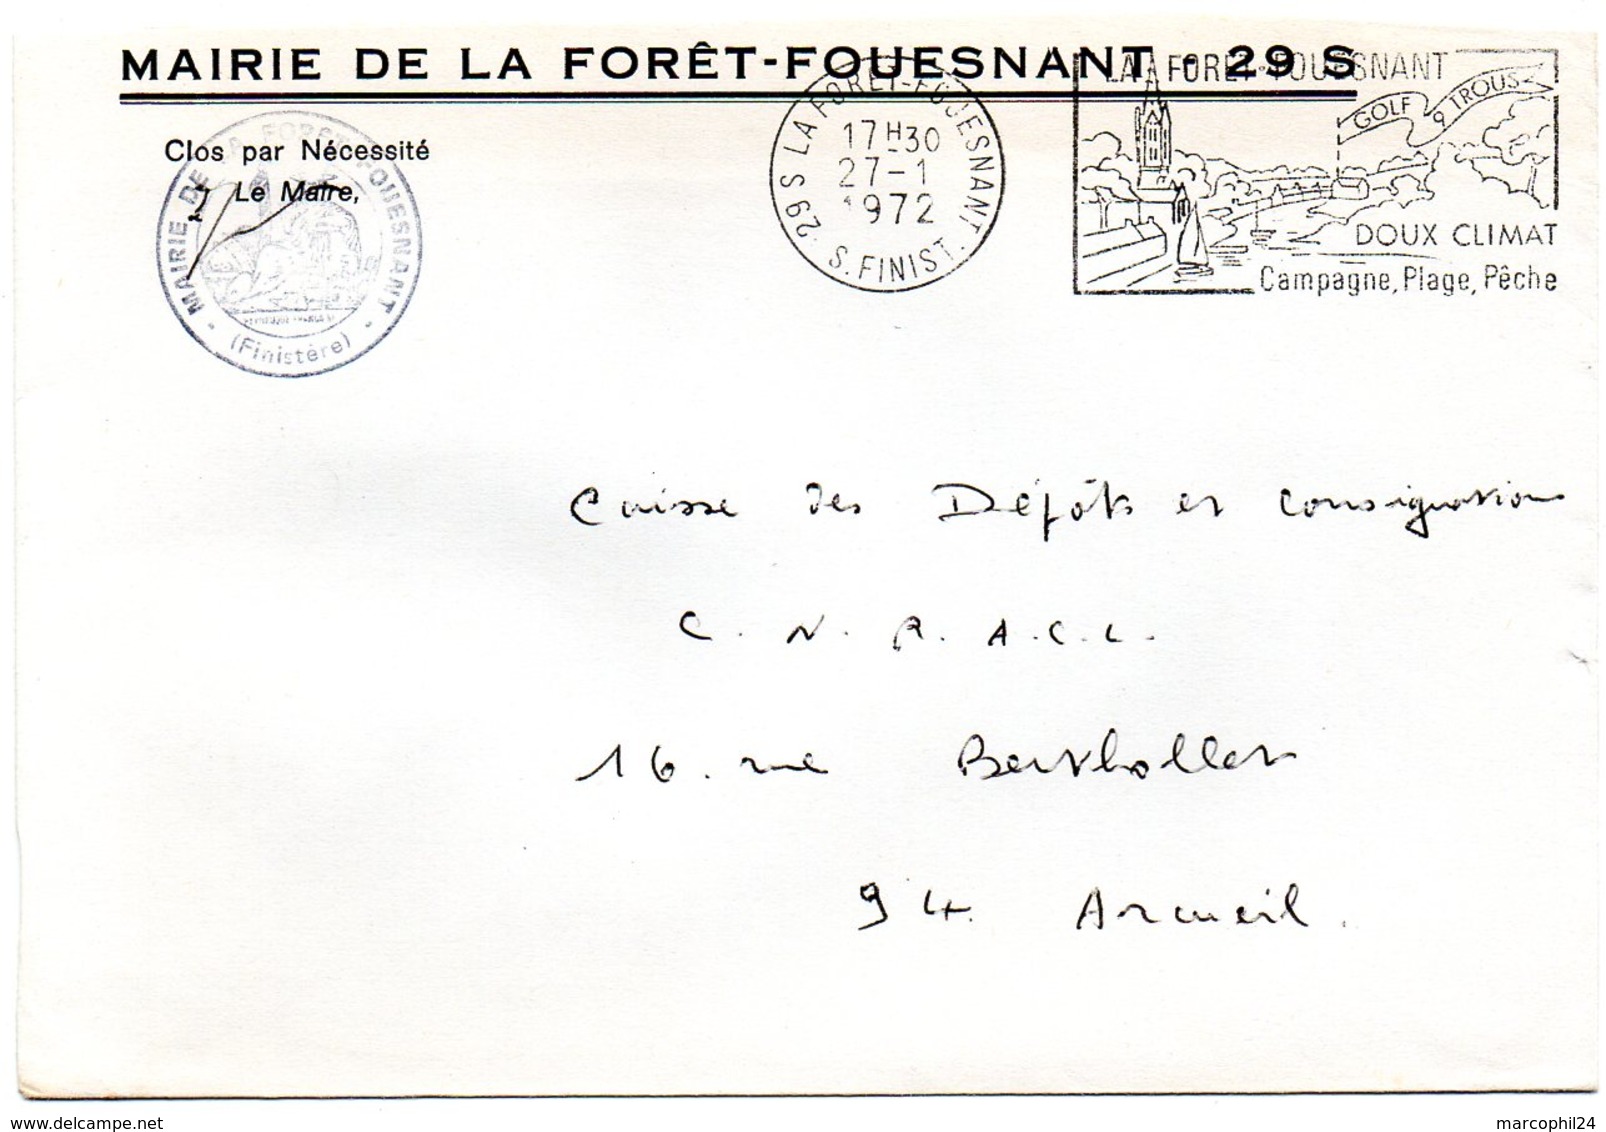 MAIRIE DE LA FORÊT-FOUESNANT - 29 S
Clos par Nécessité
Le Maire,
MAIRIE DE LA FORET-FOUESNANT
(Finistère)
29S LA FORET-FOUESNANT
17H30
27-1
1972
S. FINIST.
LA FORET-FOUESNANT
GOLF 9 TROUS
DOUX CLIMAT
Campagne, Plage, Pêche
Caisse des Dépôts et consignations
C. N. R. A. C. L.
16. rue Berthollet
94. Arcueil.
marcophil24